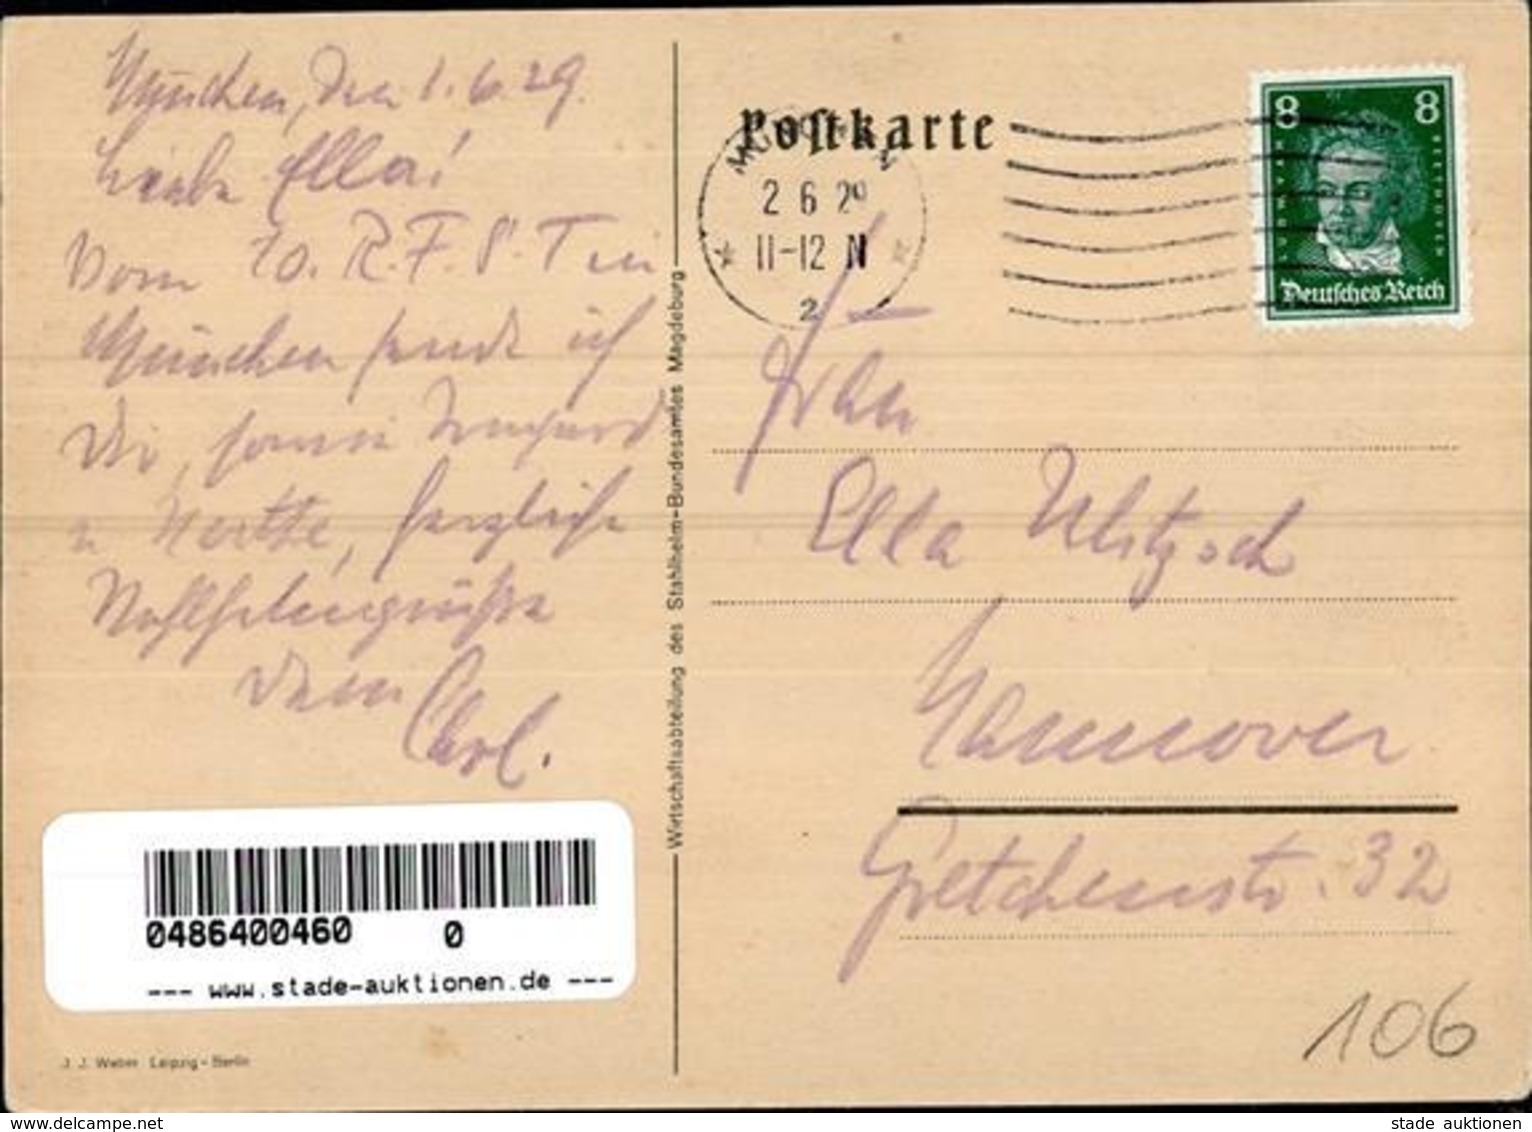 München, den 1.6.29.
Liebe Ella!
Vom 10. R.F.S.T in
München sende ich
Dir, sowie Irmgard
u Herthe, herzliche
Dein Carl.
Wirtschaftsabteilung des Stahlhelm-Bundesamtes Magdeburg
0486400460 0
--- www.stade-auktionen.de ---
J. J. Weber Leipzig - Berlin
Postkarte
MÜNCHEN
2 6 29
11-12 N
2
8 8
LUDWIG VAN BEETHOVEN
Deutsches Reich
Frau
Ella
Hannover
Gretchenstr. 32
106
stade auktionen
www.delcampe.net